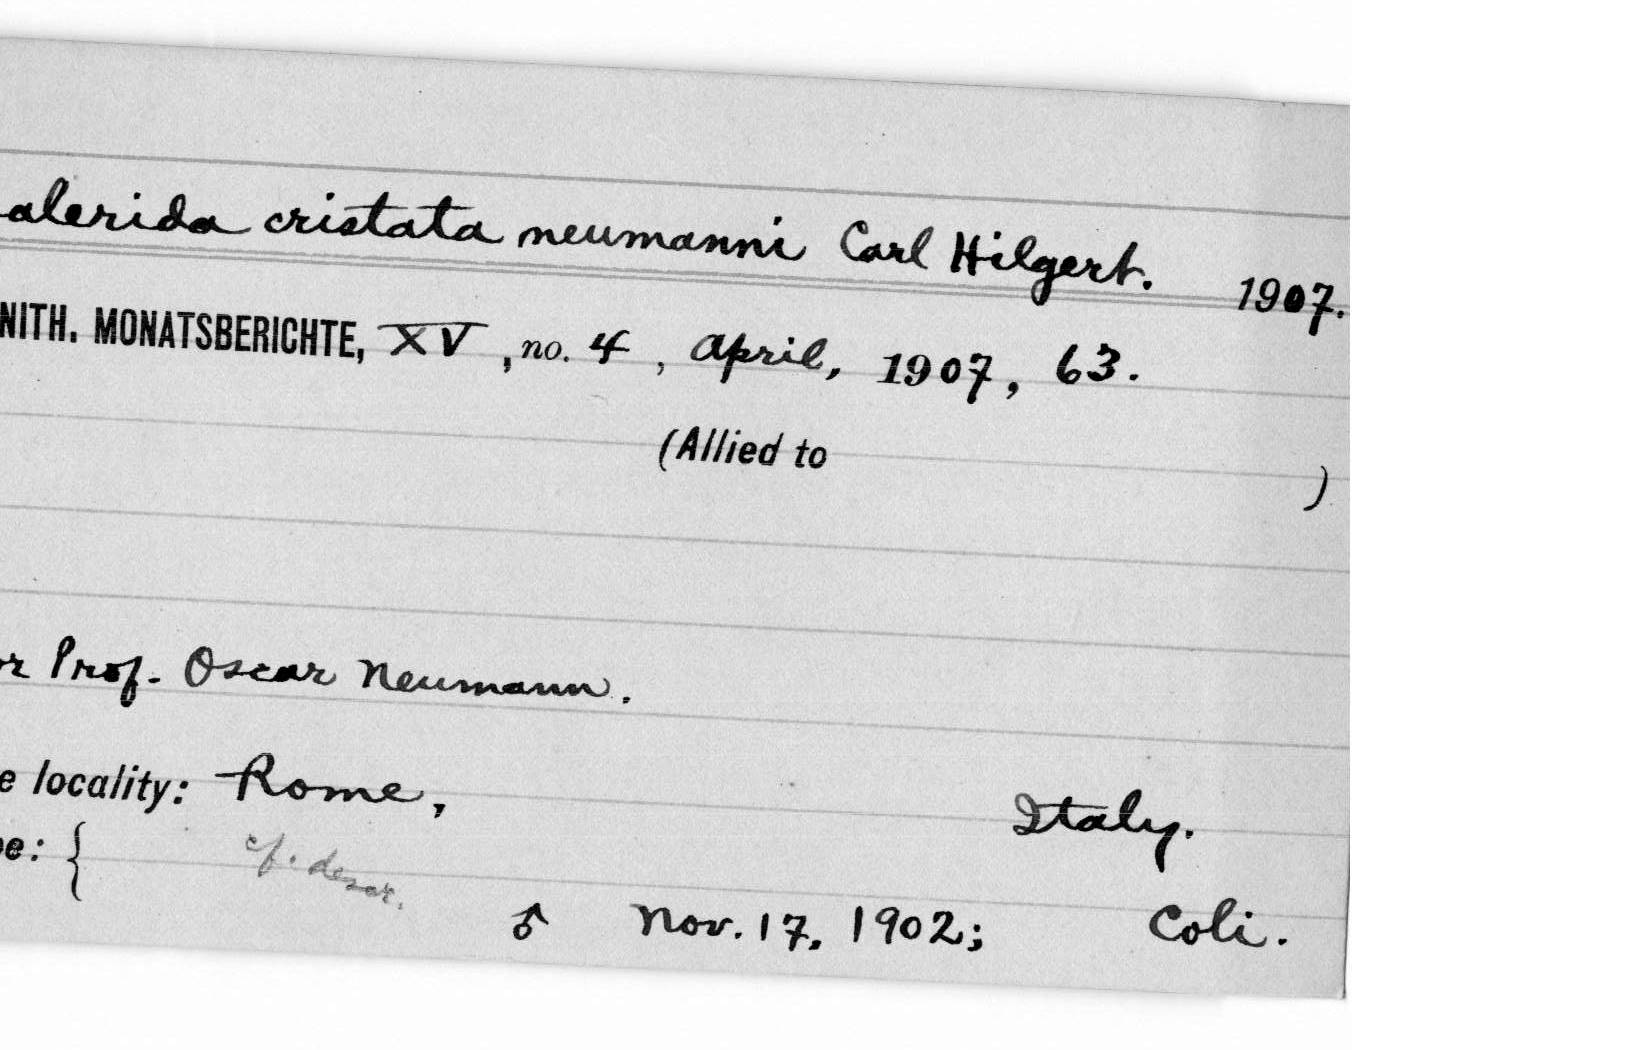 alerida cristata neumanni Carl Hilgert. 1907.
NITH. MONATSBERICHTE, XV, no. 4, April, 1907, 63.
(Allied to )
or Prof. Oscar Neumann.
e locality: Rome, Italy.
pe: { cf. descr.
♂ Nov. 17, 1902; Coli.